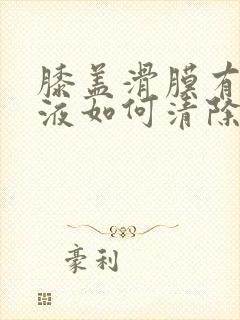 膝盖滑膜有
液如何清除
豪利